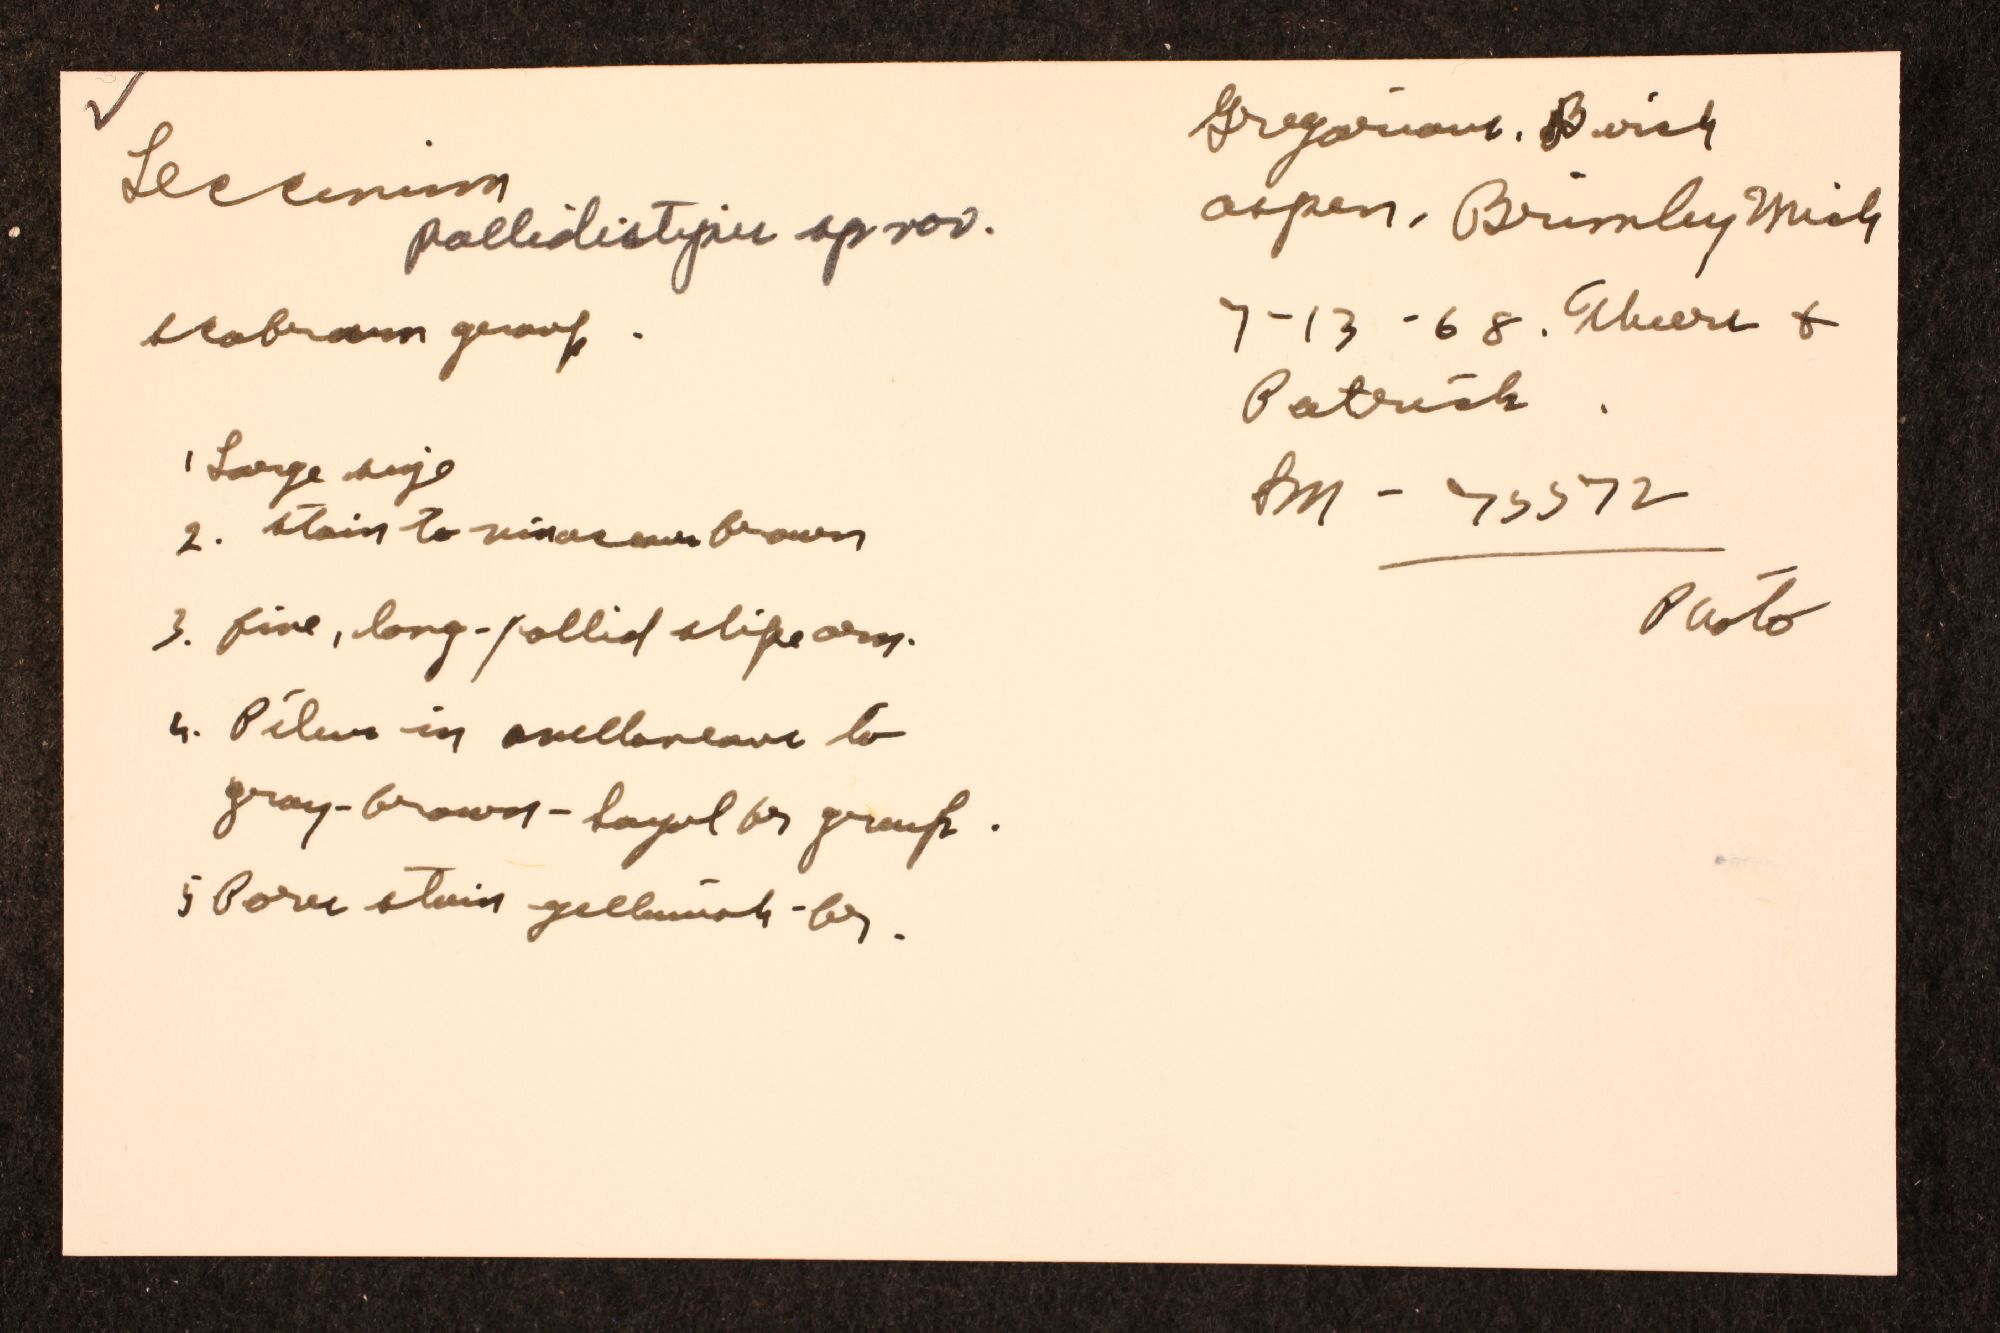 Leccinum
pallidistipes sp nov.
scabrum group.
1 Large size
2. stain to vinaceous brown
3. fine, long-pallid stipe orn.
4. Pileus in avellaneous to
gray-brown - Sayal br group.
5 Pores stain yellowish-br.
Gregarious. Birch
aspen, Brimley Mich
7-13-68. Thiers &
Patrick.
SM - 75572
Photo